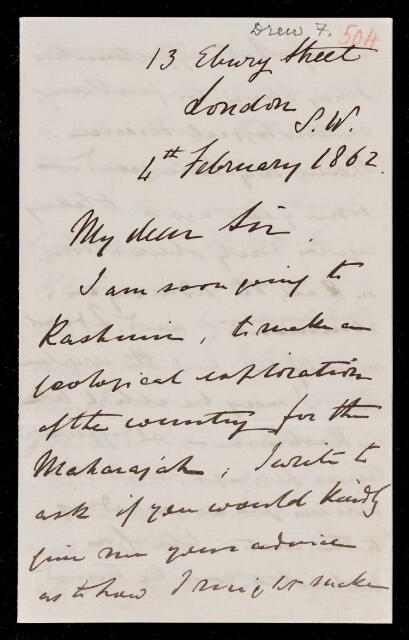 Drew F. 504
13 Ebury Street
London
S.W.
4th February 1862.
My dear Sir,
I am soon going to
Kashmir, to make a
geological exploration
of the country for the
Maharajah; I write to
ask if you would kindly
give me your advice
as to how I might make